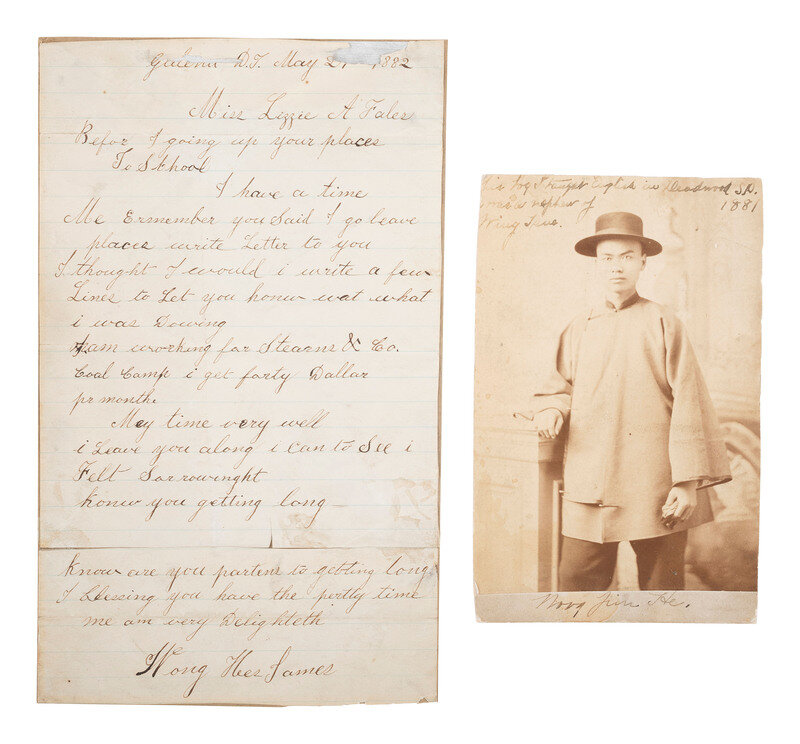 Galena D.T. May 2, 1882
Miss Lizzie A Fales
Befor I going up your places
To School
I have a time
Me Ermember you Said I go leave
places write Letter to you
I thought I would i write a few
Lines to Let you honw wat what
i was Dowing
I am working for Stearns & Co.
Coal Camp i get forty Dallar
pr month.
Mey time very well
i Leave you along i can to See i
Felt Sorrowinght
Konw you getting long
Know are you partens to getting long
I blessing you have the pertly time
me am very Delighteth
Wong Hee James
boy I taught English in Deadwood S.D.
nephew of 1881
Wing Tsue.
Wong Jim He.